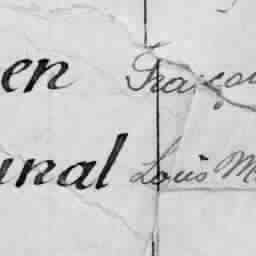 en Françoi
unal Louis M